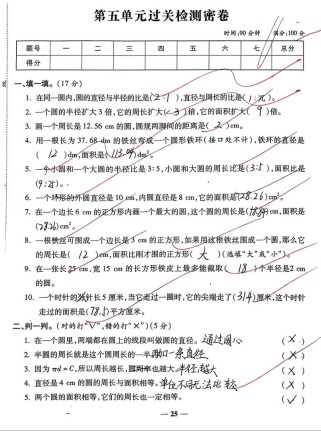 第五单元过关检测密卷
时间:90分钟 满分:100分
题号 一 二 三 四 五 六 七 总分
得分
一、填一填。(17分)
1. 在同一圆内,圆的直径与半径的比是(2:1),直径与周长的比是(1:π)。
2. 一个圆的半径扩大3倍,它的周长扩大(3)倍,它的面积扩大(9)倍。
3. 画一个周长是12.56 cm的圆,圆规两脚间的距离是(2)cm。
4. 用一根长为37.68 dm的铁丝弯成一个圆形铁环(接口处不计),铁环的直径是
(12)dm,面积是(113.04)dm²。
5. 一个小圆和一个大圆的半径比是3:5,小圆和大圆的周长比是(3:5),面积比是
(9:25)。
6. 一个环形的外圆直径是10 cm,内圆直径是8 cm,它的面积是(28.26)cm²。
7. 在一个边长6 cm的正方形内画一个最大的圆,这个圆的周长是(18.84)cm,面积是
(28.26)cm²。
8. 一根铁丝可围成一个边长是3 cm的正方形,如果用这根铁丝围成一个圆,那么它
的周长是(12)cm,面积比刚才围的正方形(大)(选填"大"或"小")。
9. 在一张长25 cm,宽15 cm的长方形铁皮上最多能截取(18)个半径是2 cm
的圆。
10. 一个时针的分针长5厘米,当它走过一圈时,它的尖端走了(31.4)厘米,这个时针
走过的面积是(78.5)平方厘米。
二、判一判。(对的打"√",错的打"×")(5分)
1. 在一个圆里,两端都在圆上的线段叫做圆的直径。通过圆心 (×)
2. 半圆的周长就是这个圆周长的一半。加一条直径 (×)
3. 因为πd=C,所以周长越长,圆周率也越大。半径越大 (×)
4. 直径是4 cm的圆的周长与面积相等。单位不同无法比较 (×)
5. 两个圆的面积相等,它们的周长也一定相等。 (√)
— 25 —